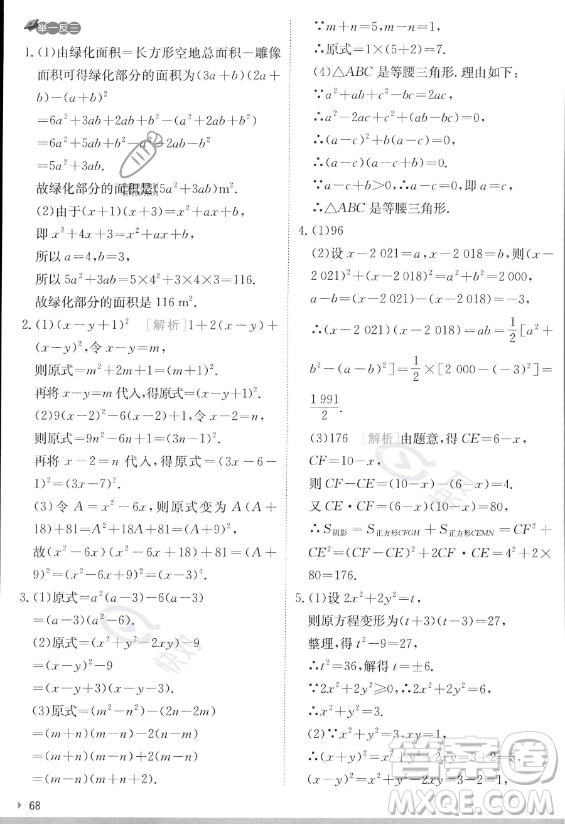 举一反三
1. (1)由绿化面积=长方形空地总面积-雕像
面积可得绿化部分的面积为(3a+b)(2a+
b)-(a+b)²
=6a²+3ab+2ab+b²-(a²+2ab+b²)
=6a²+5ab+b²-a²-2ab-b²
=5a²+3ab.
故绿化部分的面积是(5a²+3ab)m².
(2)由于(x+1)(x+3)=x²+ax+b,
即x²+4x+3=x²+ax+b,
所以a=4,b=3,
所以5a²+3ab=5×4²+3×4×3=116.
故绿化部分的面积是116 m².
2. (1)(x-y+1)² [解析]1+2(x-y)+
(x-y)²,令x-y=m,
则原式=m²+2m+1=(m+1)².
再将x-y=m代入,得原式=(x-y+1)².
(2)9(x-2)²-6(x-2)+1,令x-2=n,
则原式=9n²-6n+1=(3n-1)².
再将x-2=n代入,得原式=(3x-6-
1)²=(3x-7)².
(3)令A=x²-6x,则原式变为A(A+
18)+81=A²+18A+81=(A+9)².
故(x²-6x)(x²-6x+18)+81=(x²-6x+
9)²=(x-3)⁴.
3. (1)原式=a²(a-3)-6(a-3)
=(a-3)(a²-6).
(2)原式=(x²+y²-2xy)-9
=(x-y)²-9
=(x-y+3)(x-y-3).
(3)原式=(m²-2mn+n²)-(2m-2n)+
=(m+n)²-(m+n)+2
=(m+n)(m+n-2)+2.
68
∵m+n=5,m-n=1,
∴原式=1×(5+2)=7.
(4)△ABC是等腰三角形.理由如下:
∵a²+ab+c²-bc=2ac,
∴a²-2ac+c²+(ab-bc)=0,
∴(a-c)²+b(a-c)=0,
∴(a-c)(a-c+b)=0.
∵a-c+b>0,∴a-c=0,∴a=c,
∴△ABC是等腰三角形.
4. (1)96
(2)设x-2 021=a,x-2 018=b,则(x-
2 021)²+(x-2 018)²=a²+b²=2 000,
a-b=(x-2 021)-(x-2 018)=-3,
∴(x-2 021)(x-2 018)=ab=1/2[a²+
b²-(a-b)²]=1/2×[2 000-(-3)²]=
1 991/2.
(3)176 [解析]由题意,得CE=6-x,
CF=10-x,
∴CF-CE=(10-x)-(6-x)=4.
又CE·CF=(6-x)(10-x)=80,
∴S阴影=S正方形CFGH+S正方形CEMN=CF²+
CE²=(CF-CE)²+2CF·CE=4²+2×
80=176.
5. (1)设2x²+2y²=t,
则原方程变形为(t+3)(t-3)=27,
整理,得t²-9=27,
∴t²=36,解得t=±6.
∵2x²+2y²≥0,∴2x²+2y²=6,
∴x²+y²=3.
(2)∵(x²+y²)=3,xy=1,